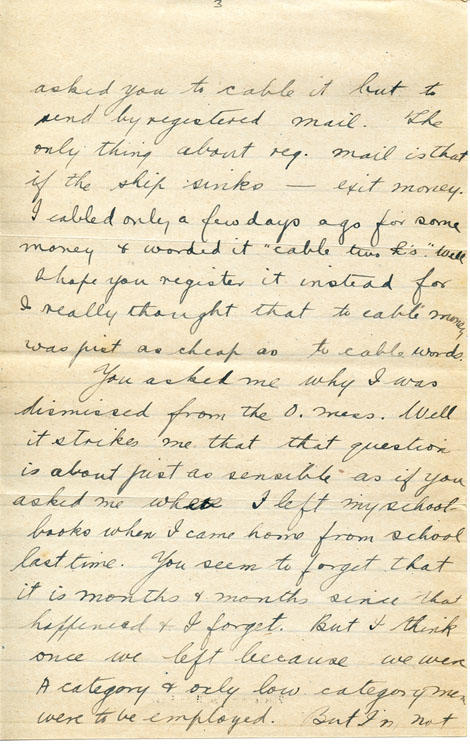 3
asked you to cable it but to
send by registered mail. The
only thing about reg. mail is that
if the ship sinks — exit money.
I cabled only a few days ago for some
money & worded it "cable two £'s." Well
I hope you register it instead for
I really thought that to cable money
was just as cheap as to cable words.
You asked me why I was
dismissed from the O. mess. Well
it strikes me that that question
is about just as sensible as if you
asked me where I left my school-
books when I came home from school
last time. You seem to forget that
it is months & months since that
happened & I forget. But I think
once we left because we were
A category & only low category men
were to be employed. But I'm not